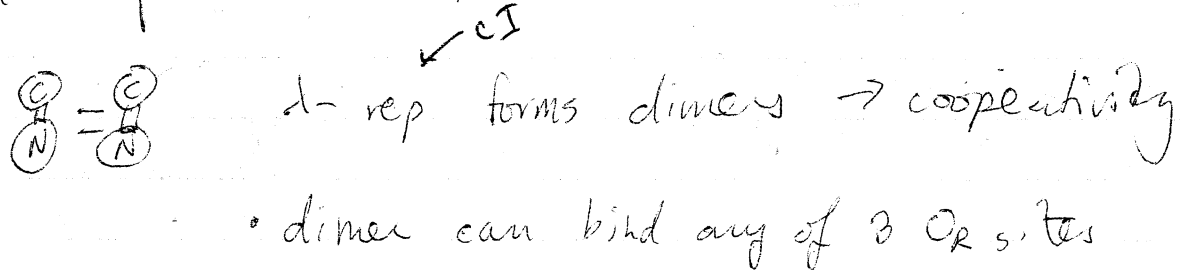 cI
C = C λ-rep forms dimers → cooperativity
N N
• dimer can bind any of 3 OR sites